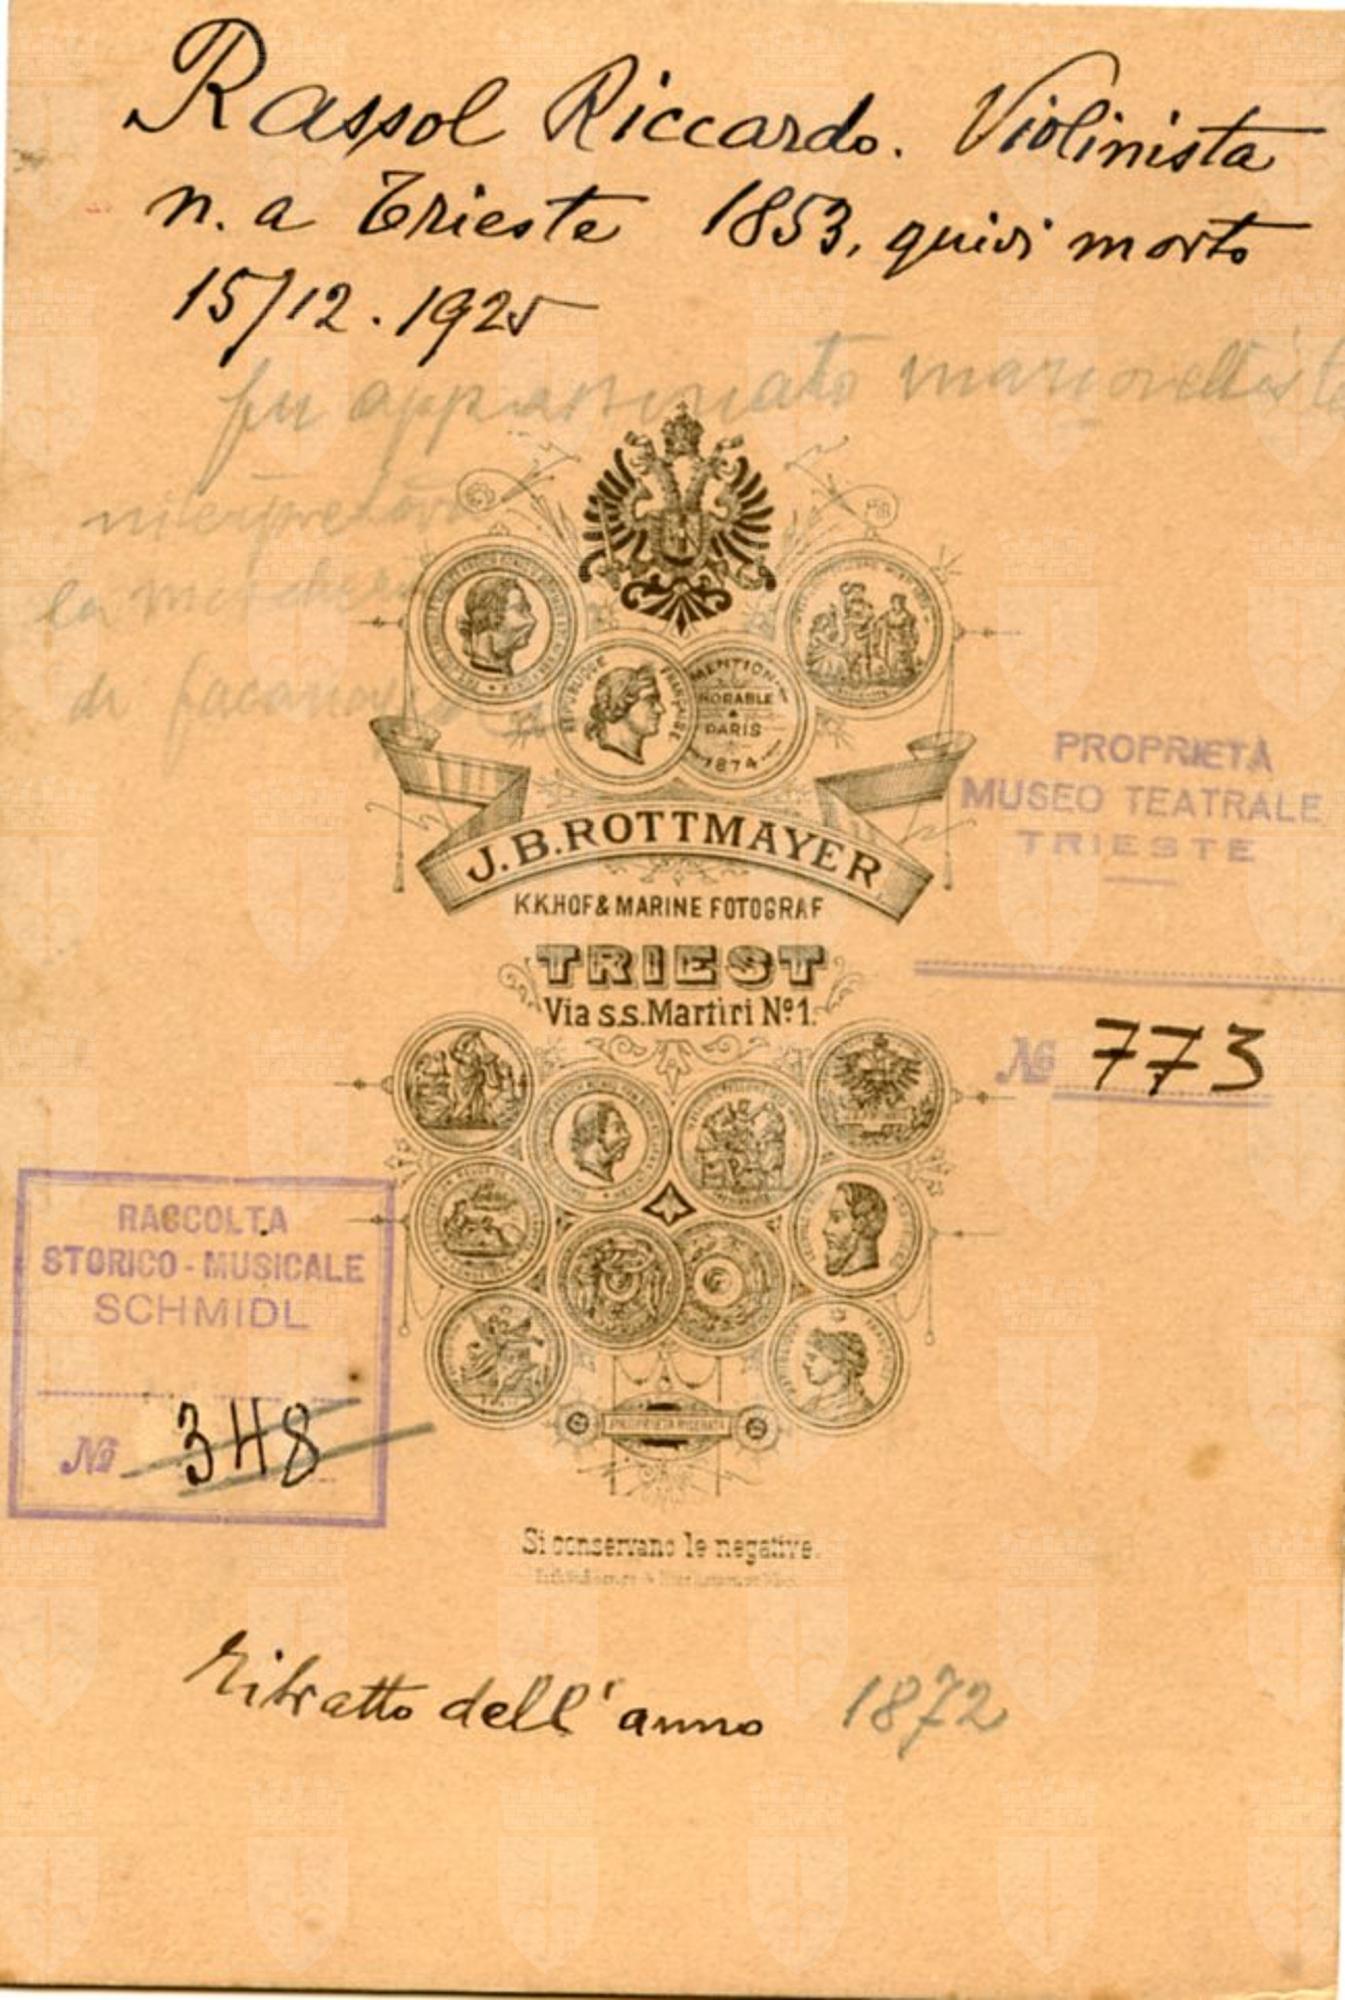 Rassol Riccardo. Violinista
n. a Trieste 1853, quivi morto
15/12. 1925
fu appassionato marionettista
interpretava
la maschera
di facanapa
REPUBLIQUE FRANÇAISE
MENTION
HONORABLE
PARIS
1874
J. B. ROTTMAYER
K.K.HOF & MARINE FOTOGRAF
TRIEST
Via s.s. Martiri Nº 1.
PROPRIETÀ
MUSEO TEATRALE
TRIESTE
№ 773
RACCOLTA
STORICO - MUSICALE
SCHMIDL
№ 348
PROPRIETA RISERVATA
Si conservano le negative.
ritratto dell'anno 1872